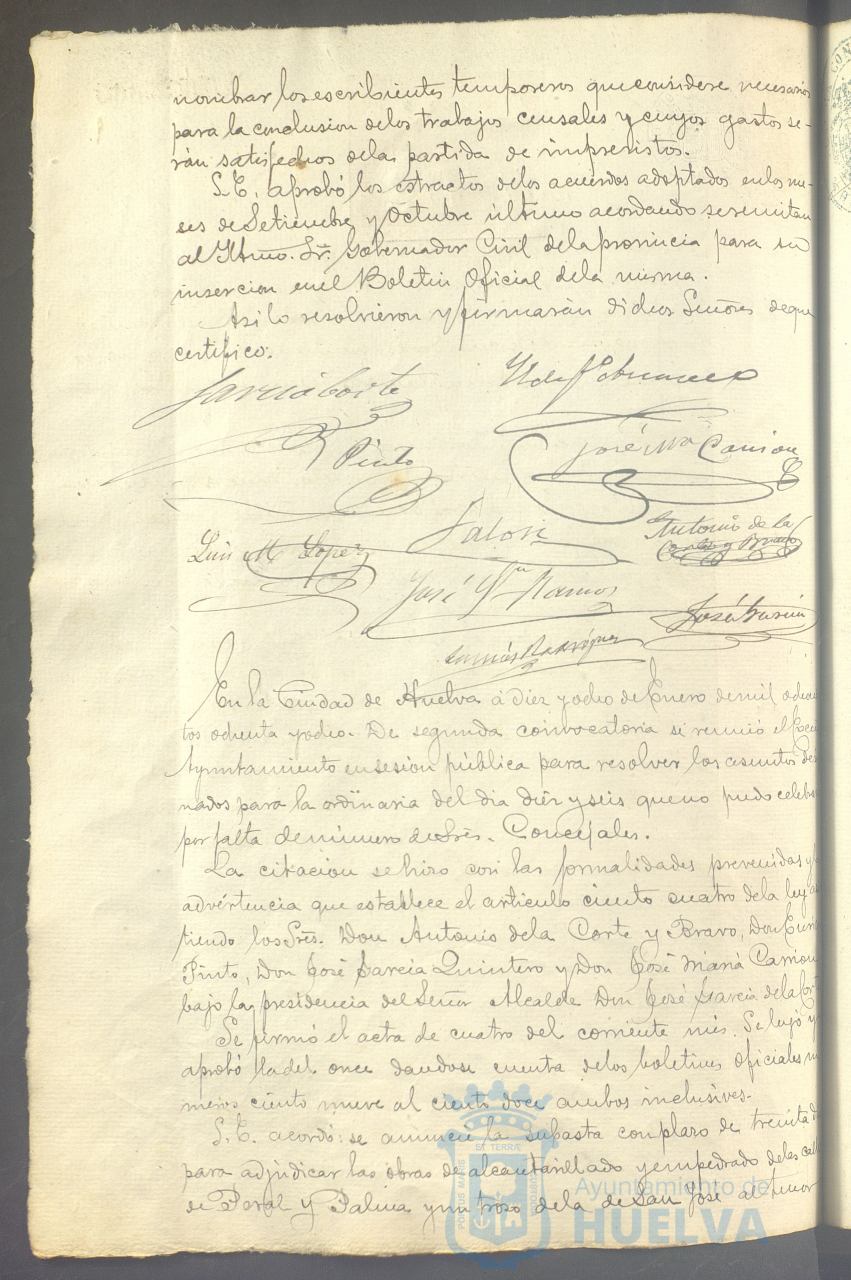 nombrar los escribientes temporeros que considere necesarios
para la conclusion de los trabajos censales y cuyos gastos se-
rán satisfechos de la partida de imprevistos.
S. E. aprobó los estractos de los acuerdos adoptados en los me-
ses de Setiembre y Octubre último acordando se remitan
al Iltmo. Sr. Gobernador Civil de la provincia para su
insercion en el Boletin Oficial de la misma.
Asi lo resolvieron y firmarán dichos Señores de que
certifico.
García Corte
Pinto
José Mª Carrion
Luis M Lopez
Antonio de la
Corte y Bravo
José Mª Ramos
José García
Rodríguez
En la Ciudad de Huelva á diez y ocho de Enero de mil ochocien
tos ochenta y ocho. De segunda convocatoria se reunió el Excmo
Ayuntamiento en sesión pública para resolver los asuntos desti
nados para la ordinaria del dia diez y seis que no pudo celebrar
por falta de número de Sres. Concejales.
La citacion se hizo con las formalidades prevenidas y
advertencia que establece el articulo ciento cuatro de la ley asis
tiendo los Sres. Don Antonio de la Corte y Bravo, Don
Pinto, Don José Garcia Quintero y Don José María Carrion
bajo la presidencia del Señor Alcalde Don José Garcia de la Corte
Se firmó el acta de cuatro del corriente mes. Se leyó y
aprobó la del once dandose cuenta de los boletines oficiales nú
meros ciento nueve al ciento doce ambos inclusives.
S. E. acordó: se anuncie la subasta con plazo de treinta
para adjudicar las obras de alcantarillado y empedrado de las calles
de Peral y Palma y un trozo de la de San José al tenor
Ayuntamiento de
HUELVA